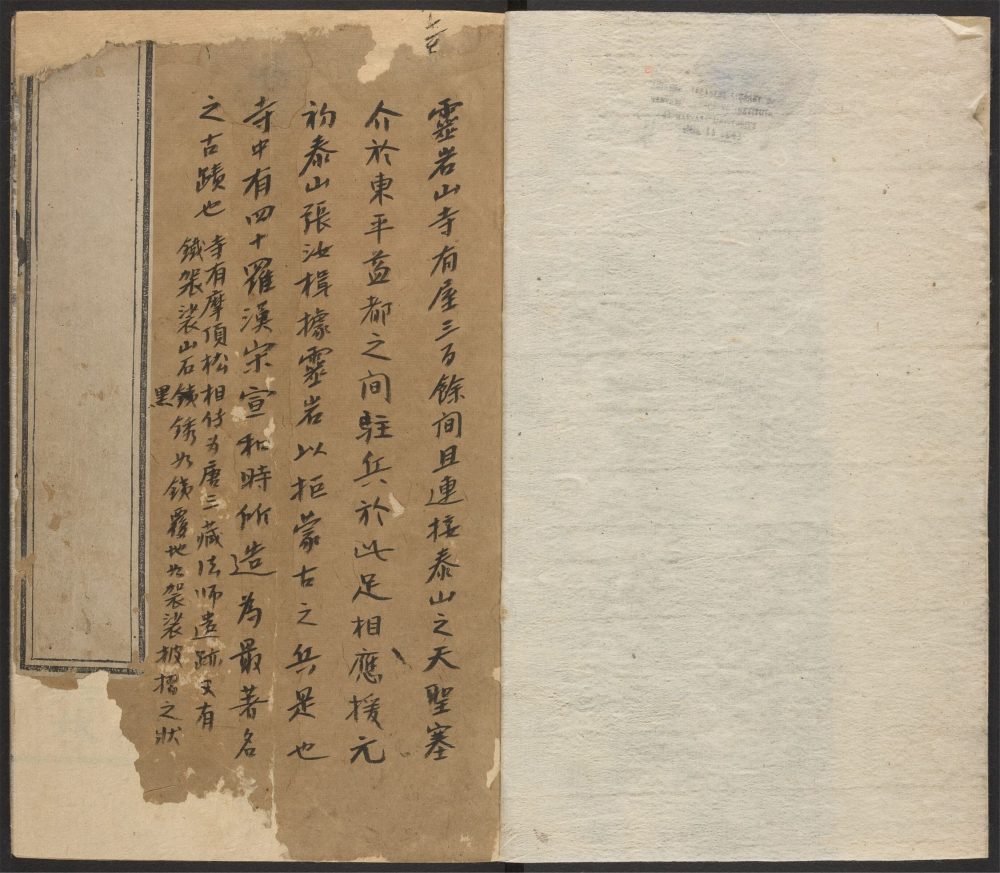 靈岩山寺有屋三百餘间且連接泰山之天聖塞
介於東平益都之间駐兵於此足相應援元
初泰山張汝楫據靈岩以拒蒙古之兵是也
寺中有四十羅漢宋宣和時所造為最著名
之古蹟也
寺有摩頂松相传为唐三藏法师遺跡又有
鐵袈裟山石鐵銹如鉄覆地如袈裟披摺之狀
黑